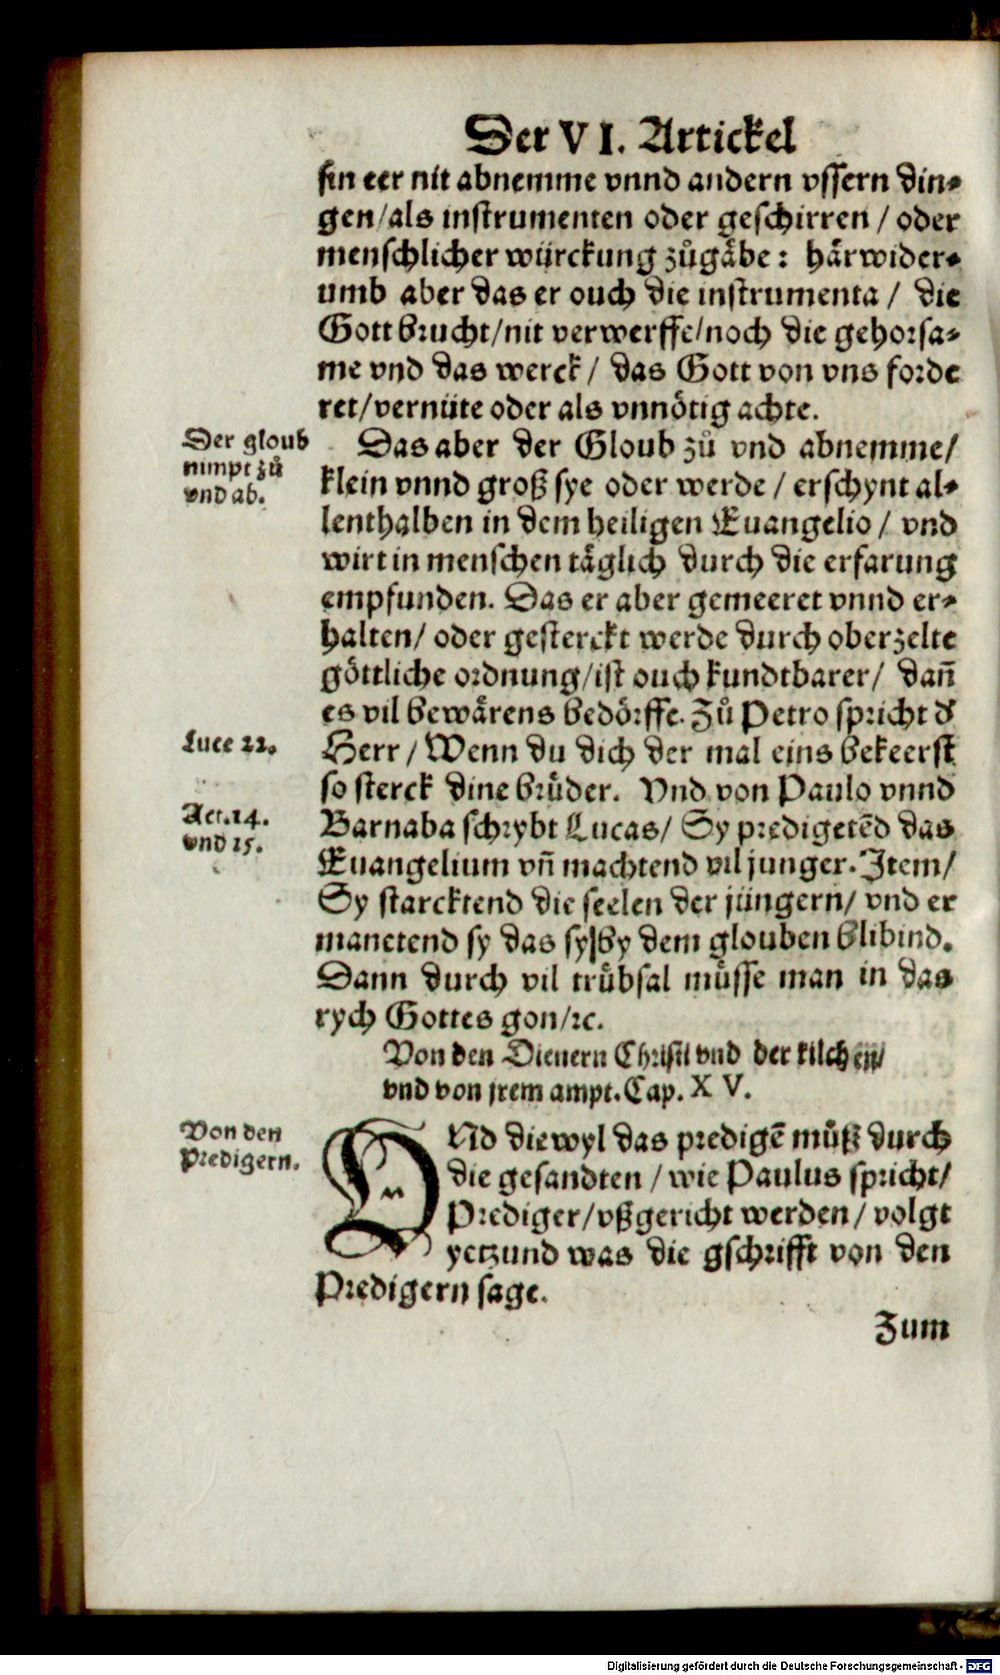 Der VI. Artickel
sin eer nit abnemme vnnd andern vssern din⸗
gen/als instrumenten oder geschirren / oder
menschlicher würckung zůgäbe: härwider⸗
umb aber das er ouch die instrumenta / die
Gott brucht/nit verwerffe/noch die gehorsa⸗
me vnd das werck / das Gott von vns forde
ret/vernüte oder als vnnötig achte.
Der gloub
nimpt zů
vnd ab.
Das aber der Gloub zů vnd abnemme/
klein vnnd groß sye oder werde / erschynt al⸗
lenthalben in dem heiligen Euangelio / vnd
wirt in menschen täglich durch die erfarung
empfunden. Das er aber gemeeret vnnd er⸗
halten/ oder gesterckt werde durch oberzelte
göttliche ordnung/ist ouch kundtbarer/ dañ
es vil bewärens bedörffe. Zů Petro spricht d'
Luce 22.
Herr / Wenn du dich der mal eins bekeerst
so sterck dine brůder. Vnd von Paulo vnnd
Act. 14.
vnd 15.
Barnaba schrybt Lucas/ Sy predigetẽd das
Euangelium vñ machtend vil junger. Item/
Sy starcktend die seelen der jüngern/ vnd er
manetend sy das sy|by dem glouben blibind.
Dann durch vil trůbsal můsse man in das
rych Gottes gon/ꝛc.
Von den Dienern Christi vnd der kilchen/
vnd von jrem ampt. Cap. XV.
Von den
Predigern.
VNd diewyl das predigẽ můß durch
die gesandten / wie Paulus spricht/
Prediger/vßgericht werden/ volgt
yetzund was die gschrifft von den
Predigern sage.
Zum
Digitalisierung gefördert durch die Deutsche Forschungsgemeinschaft - DFG